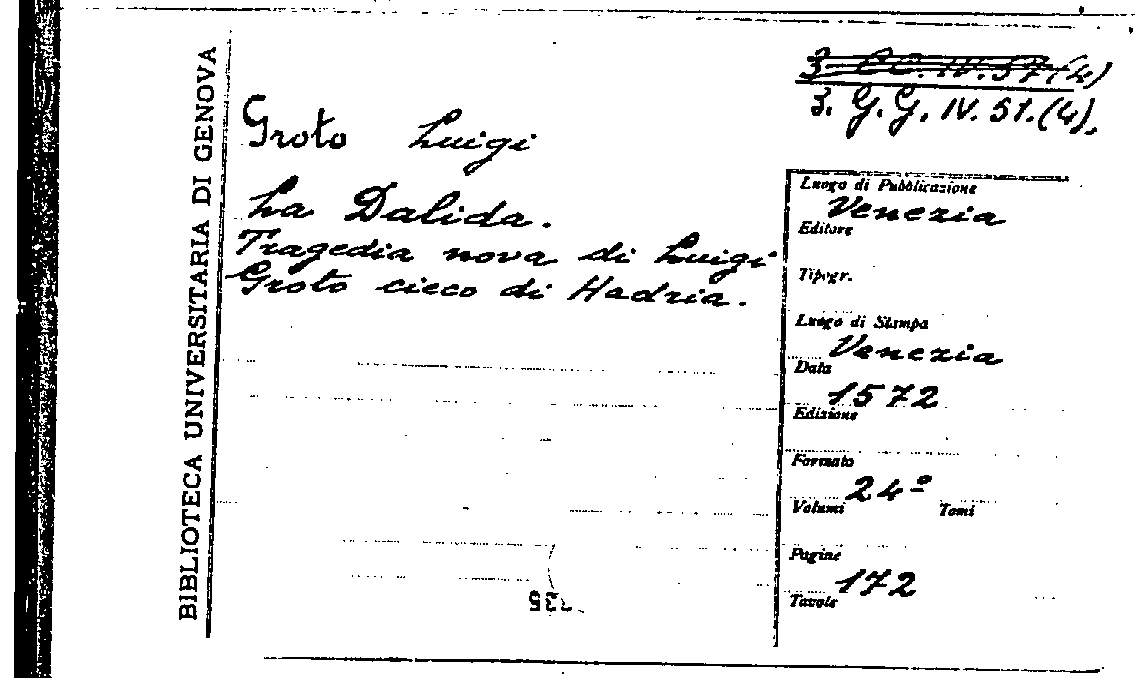 BIBLIOTECA UNIVERSITARIA DI GENOVA
3 CC. IV. 57 (4)
3. G. G. IV. 51. (4).
Groto Luigi
La Dalida.
Tragedia nova di Luigi
Groto cieco di Hadria.
Luogo di Pubblicazione
Venezia
Editore
Tipogr.
Luogo di Stampa
Venezia
Data
1572
Edizione
Formato
24º
Volumi Tomi
Pagine
172
Tavole